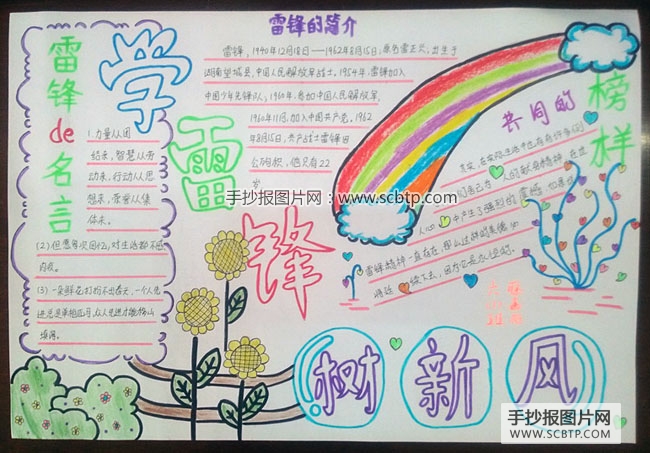 雷锋de名言
1.力量从团
结来，智慧从劳
动来，行动从思
想来，荣誉从集
体来。
(2)但愿每次回忆，对生活都不感
内疚。
(3)一朵鲜花打扮不出春天，一个人先
进总是单枪匹马，众人先进才能移山
填海。
学
雷
锋
雷锋的简介
雷锋，1940年12月18日——1962年8月15日，原名雷正兴，出生于
湖南望城县，中国人民解放军战士，1954年，雷锋加入
中国少年先锋队，1960年，参加中国人民解放军，
1960年11月，加入中国共产党，1962
年8月15日，共产战士雷锋因
公殉职，他只有22
岁
共同的
榜样
其实，在实际生活中也存有许多倒
人心 中产生了强烈的震撼
雷锋精神一直存在
树新风
手抄报图片网：www.scbtp.com
手抄报图片网
WWW.SCBTP.COM